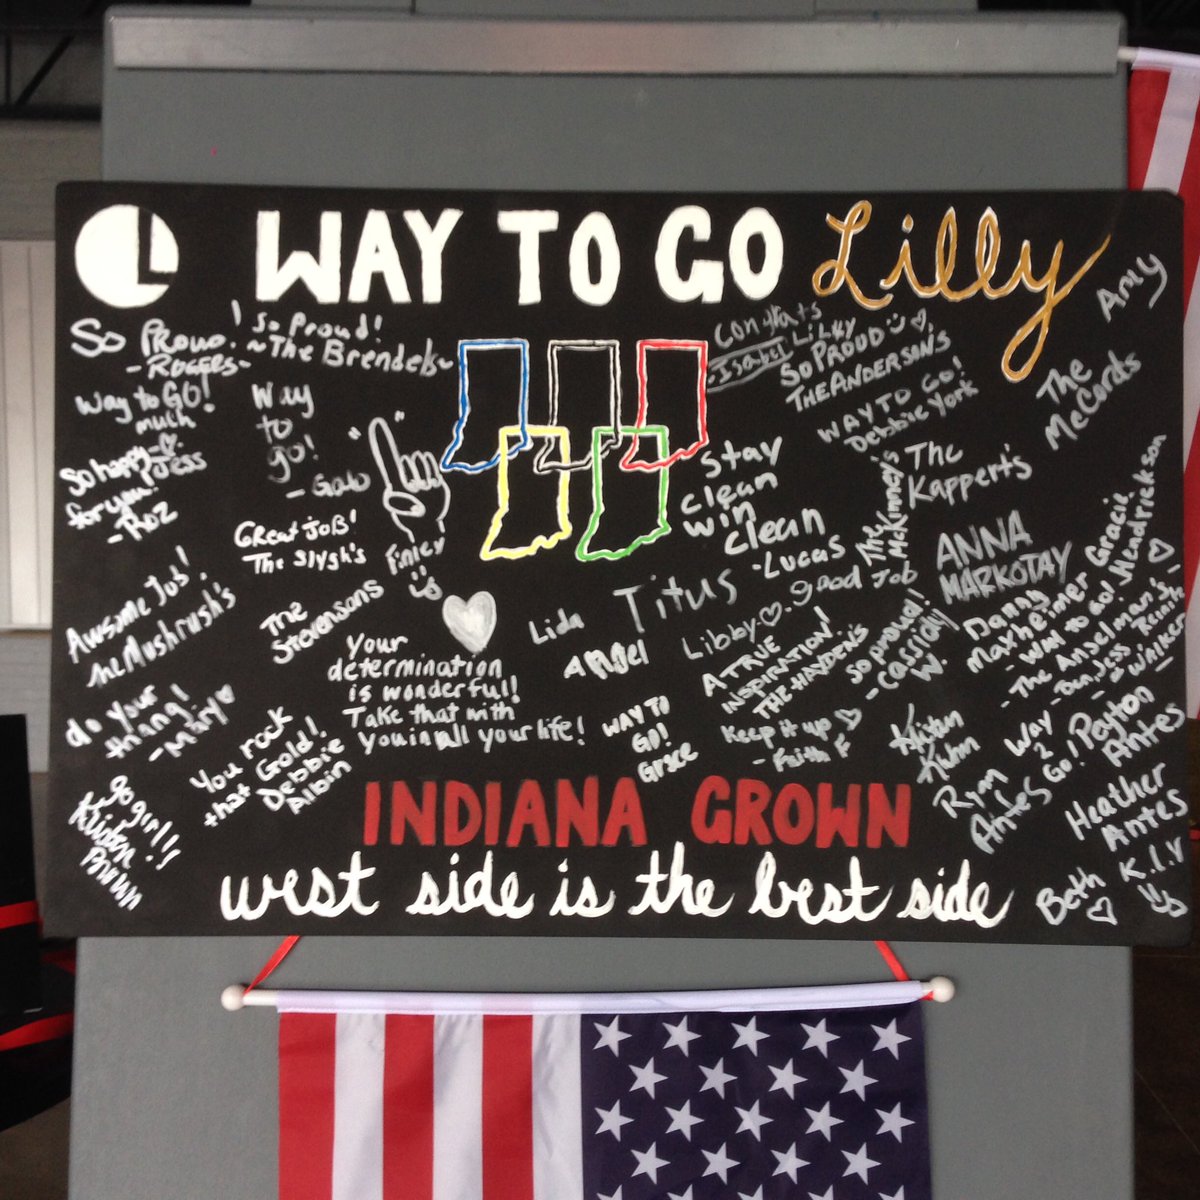 WAY TO GO Lilly
So Proud!
- Rogges -
So Proud!
~The Brendels~
Congrats
Lilly
Isabel
SO PROUD
THE ANDERSON'S
Amy
Way to GO!
much
- Jess
Way
to
go!
- Gabo
WAY TO GO!
Debbie York
The
McCords
So happy
for you!
- Roz
Great JOB!
The Slygh's
Finley
Stay
clean
win
clean
- Lucas
The
McKinney's
The
Kappert's
ANNA
MARKOTAY
Gracie
Hendrickson
Awesome Job!
The Stevensons
Lida
Titus
Angel
Libby
good Job
A TRUE
INSPIRATION!
THE HAYDEN'S
So proud!
- Cassidy
W.
Danny
Maxheimer
- Way to Go!
- The Anselman's -
Dan, Jess
Your
determination
is wonderful!
Take that with
you in all your life!
do your
thing!
- Mary
You rock
that Gold!
Debbie
Albin
WAY TO
GO!
Grace
Keep it up
- Faith F
Kristin
Kuhn
Ryan
Antes
Way
2
Go!
Peyton
Antes
go girl!!
Kristen
Brown
Heather
Antes
Beth
K.I.Y
INDIANA GROWN
west side is the best side